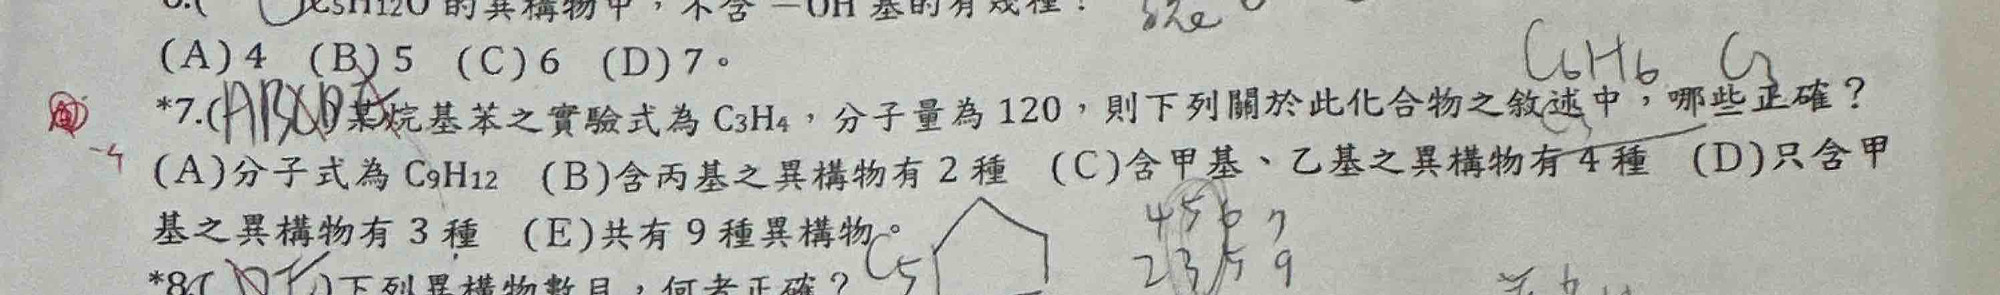 C5H12O 的異構物中，不含 －OH 基的有幾種？
(A) 4 (B) 5 (C) 6 (D) 7。
C6H6 C3
*7.( ABD )某烷基苯之實驗式為 C3H4，分子量為 120，則下列關於此化合物之敘述中，哪些正確？
-4
(A)分子式為 C9H12 (B)含丙基之異構物有 2 種 (C)含甲基、乙基之異構物有 4 種 (D)只含甲
基之異構物有 3 種 (E)共有 9 種異構物。
4 5 6 7
2 3 5 9
C5
*8.( )下列異構物數目，何者正確？